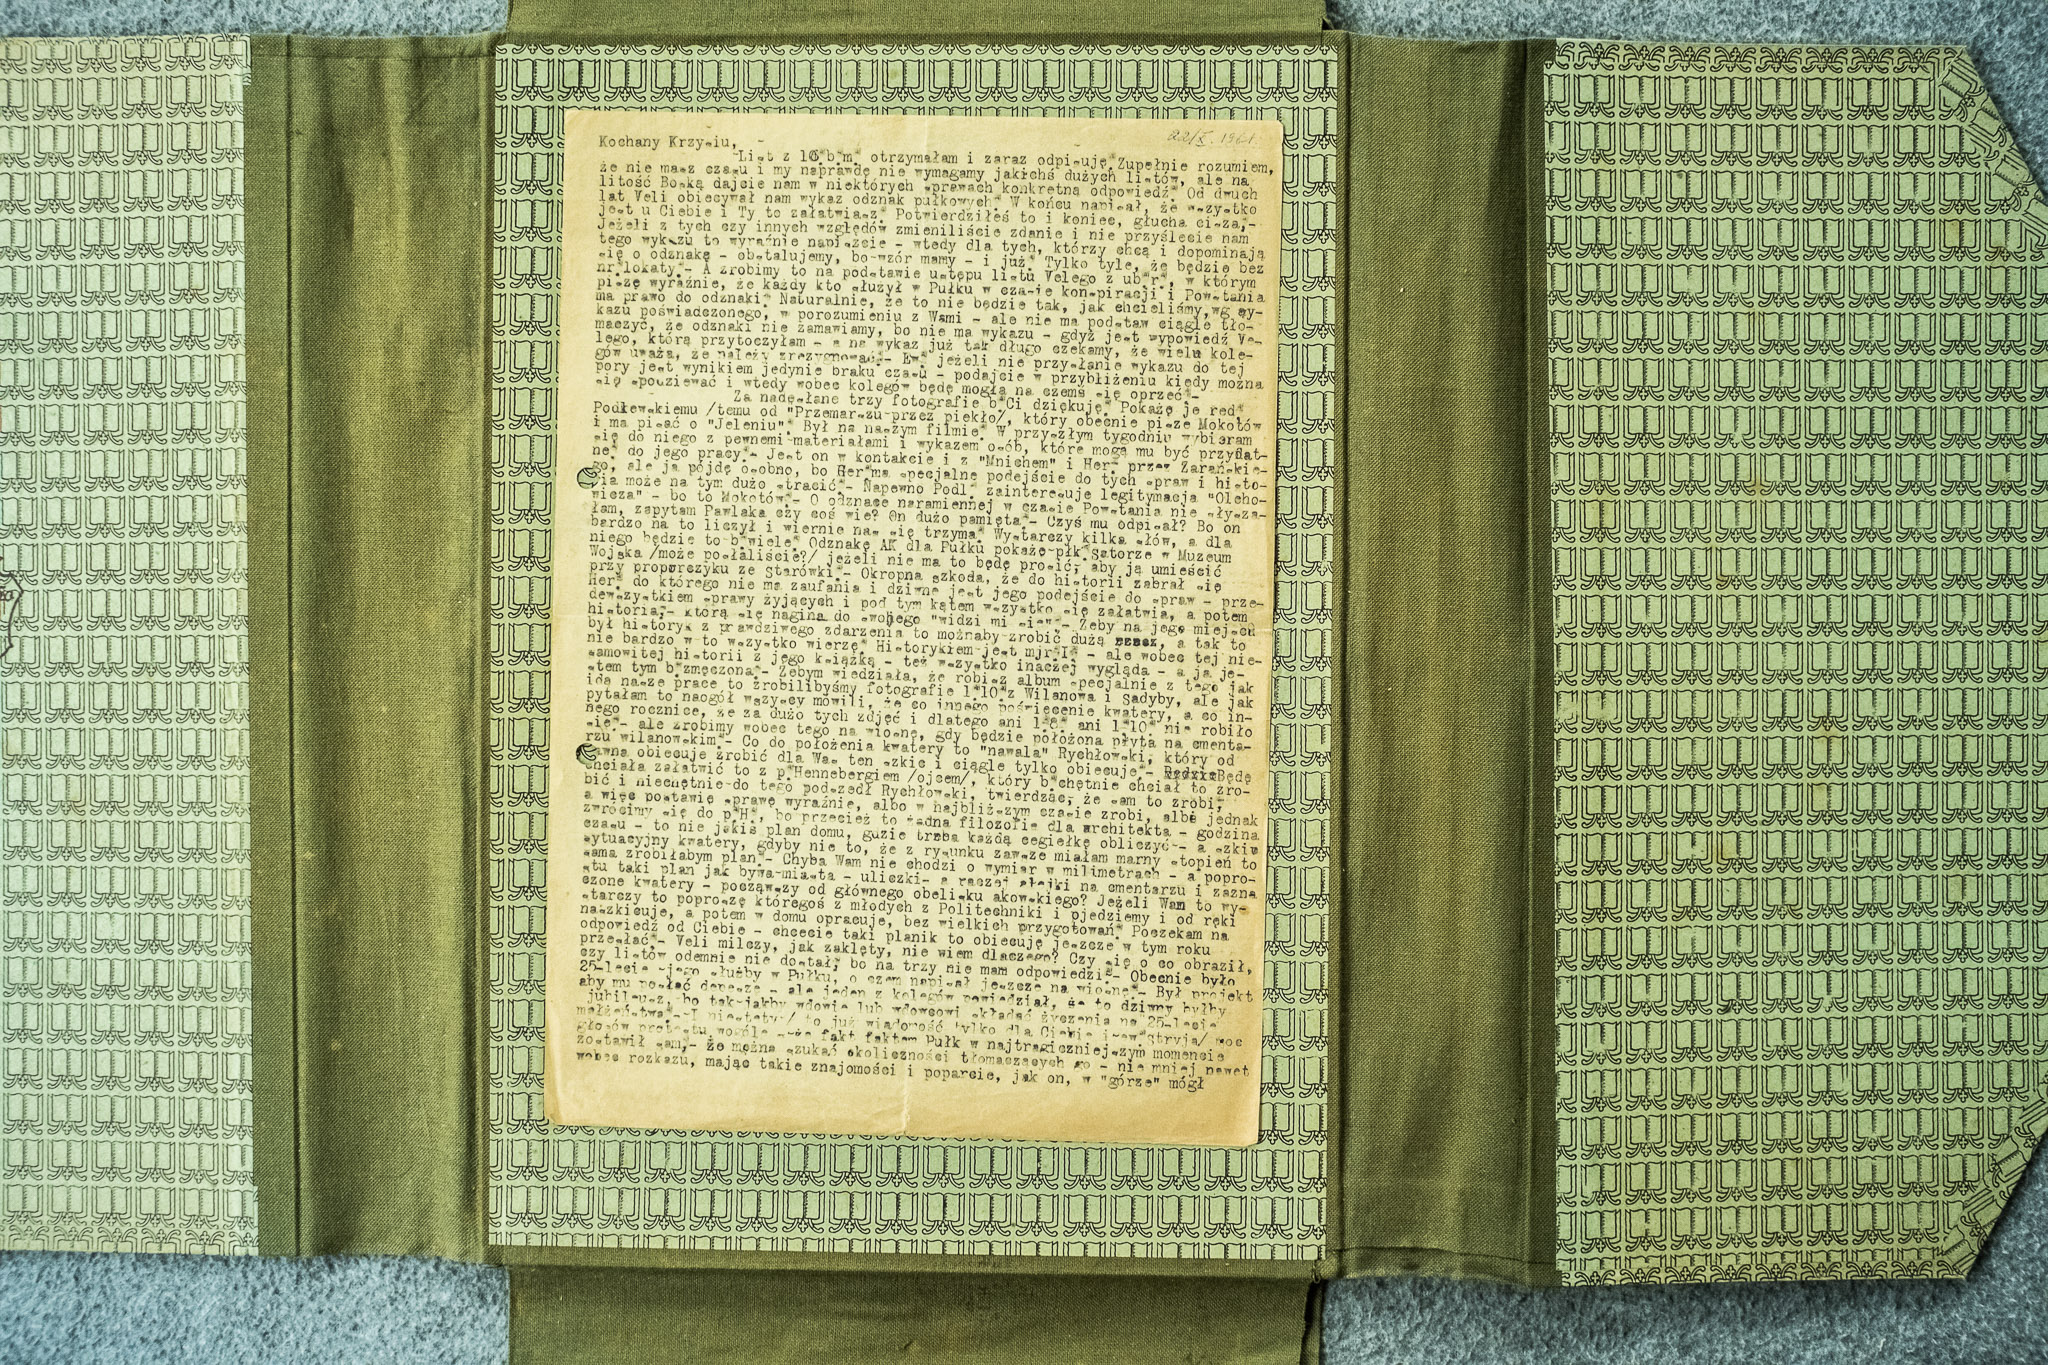 22/X. 1961
Kochany Krzysiu,
List z 16 b.m. otrzymałam i zaraz odpisuję. Zupełnie rozumiem,
że nie masz czasu i my naprawdę nie wymagamy jakichś dużych listów, ale na
litość Boską dajcie nam w niektórych sprawach konkretną odpowiedź. Od dwuch
lat Veli obiecywał nam wykaz odznak pułkowych. W końcu napisał, że wszystko
jest u Ciebie i Ty to załatwiasz. Potwierdziłeś to i koniec, głucha cisza,-
Jeżeli z tych czy innych względów zmieniliście zdanie i nie przyślecie nam
tego wykazu to wyraźnie napiszcie - wtedy dla tych, którzy chcą i dopominają
się o odznakę - obstalujemy, bo wzór mamy - i już. Tylko tyle, że będzie bez
nr.lokaty.- A zrobimy to na podstawie ustępu listu Velego z ub.r., w którym
pisze wyraźnie, że każdy kto służył w Pułku w czasie konspiracji i Powstania
ma prawo do odznaki. Naturalnie, że to nie będzie tak, jak chcieliśmy, wg wy-
kazu poświadczonego, w porozumieniu z Wami - ale nie ma podstaw ciągle tło-
maczyć, że odznaki nie zamawiamy, bo nie ma wykazu - gdyż jest wypowiedź Ve-
lego, którą przytoczyłam - a na wykaz już tak długo czekamy, że wielu kole-
gów uważa, że należy zrezygnować.- Ew. jeżeli nie przysłanie wykazu do tej
pory jest wynikiem jedynie braku czasu - podajcie w przybliżeniu kiedy można
się spodziewać i wtedy wobec kolegów będę mogła na czemś się oprzeć.-
Za nadesłane trzy fotografie b.Ci dziękuję. Pokażę je red.
Podlewskiemu /temu od "Przemarszu przez piekło/, który obecnie pisze Mokotów
i ma pisać o "Jeleniu". Był na naszym filmie. W przyszłym tygodniu wybieram
się do niego z pewnemi materiałami i wykazem osób, które mogą mu być przydat-
ne do jego pracy.- Jest on w kontakcie i z "Mnichem" i Her. przez Zarańskie-
go, ale ja pójdę osobno, bo Her.ma specjalne podejście do tych spraw i histo-
ria może na tym dużo stracić.- Napewno Podl. zainteresuje legitymacja "Olcho-
wicza" - bo to Mokotów.- O odznace naramiennej w czasie Powstania nie słysza-
łam, zapytam Pawlaka czy coś wie? On dużo pamięta.- Czyś mu odpisał? Bo on
bardzo na to liczył i wiernie nas się trzyma. Wystarczy kilka słów, a dla
niego będzie to b.wiele. Odznakę AK dla Pułku pokażę płk.Satorze w Muzeum
Wojska /może posłaliście?/ jeżeli nie ma to będę prosić, aby ją umieścić
przy proporczyku ze Starówki.- Okropna szkoda, że do historii zabrał się
Her. do którego nie ma zaufania i dziwne jest jego podejście do spraw - prze-
dewszystkiem sprawy żyjących i pod tym kątem wszystko się załatwia, a potem
historia,- którą się nagina do swojego "widzi mi się".- Żeby na jego miejscu
był historyk z prawdziwego zdarzenia to możnaby zrobić dużą rzecz, a tak to
nie bardzo w to wszystko wierzę. Historykiem jest mjr.I. - ale wobec tej nie-
samowitej historii z jego książką - też wszystko inaczej wygląda - a ja je-
stem tym b.zmęczona.- Żebym wiedziała, że robisz album specjalnie z tego jak
idą nasze prace to zrobilibyśmy fotografie 1.10.z Wilanowa i Sadyby, ale jak
pytałam to naogół wszyscy mówili, że co innego poświęcenie kwatery, a co in-
nego rocznice, że za dużo tych zdjęć i dlatego ani 1.8. ani 1.10. nie robiło
się.- ale zrobimy wobec tego na wiosnę, gdy będzie położona płyta na cmenta-
rzu wilanowskim.- Co do położenia kwatery to "nawala" Rychłowski, który od
dawna obiecuje zrobić dla Was ten szkic i ciągle tylko obiecuje.- Będę
chciała załatwić to z p.Hennebergiem /ojcem/, który b.chętnie chciał to zro-
bić i niechętnie do tego podszedł Rychłowski, twierdząc, że sam to zrobi,
a więc postawię sprawę wyraźnie, albo w najbliższym czasie zrobi, albo jednak
zwrócimy się do p.H., bo przecież to żadna filozofia dla architekta - godzina
czasu - to nie jakiś plan domu, gdzie trzeba każdą cegiełkę obliczyć - a szkic
sytuacyjny kwatery, gdyby nie to, że z rysunku zawsze miałam marny stopień to
sama zrobiłabym plan.- Chyba Wam nie chodzi o wymiar w milimetrach - a popro-
stu taki plan jak bywa miasta - uliczki- a raczej alejki na cmentarzu i zazna
czone kwatery - począwszy od głównego obelisku akowskiego? Jeżeli Wam to wy-
starczy to poproszę któregoś z młodych z Politechniki i pjedziemy i od ręki
naszkicuje, a potem w domu opracuje, bez wielkich przygotowań. Poczekam na
odpowiedź od Ciebie - chcecie taki planik to obiecuję jeszcze w tym roku
przesłać.- Veli milczy, jak zaklęty, nie wiem dlaczego? Czy się o co obraził,
czy listów odemnie nie dostał, bo na trzy nie mam odpowiedzi.- Obecnie było
25-lecie jego służby w Pułku, o czem napisał jeszcze na wiosnę.- Był projekt
aby mu posłać depeszę - ale jeden z kolegów powiedział, że to dziwny byłby
jubileusz, bo tak jakby wdowie lub wdowcowi składać życzenia na 25-lecie
małżeństwa.- I niestety / to już wiadomość tylko dla Ciebie i Stryja/ moc
głosów protestu wogóle że fakt faktem Pułk w najtragiczniejszym momencie
zostawił sam,- że można szukać okoliczności tłomaczących go - nie mniej nawet
wobec rozkazu, mając takie znajomości i poparcie, jak on, w "górze" mógł